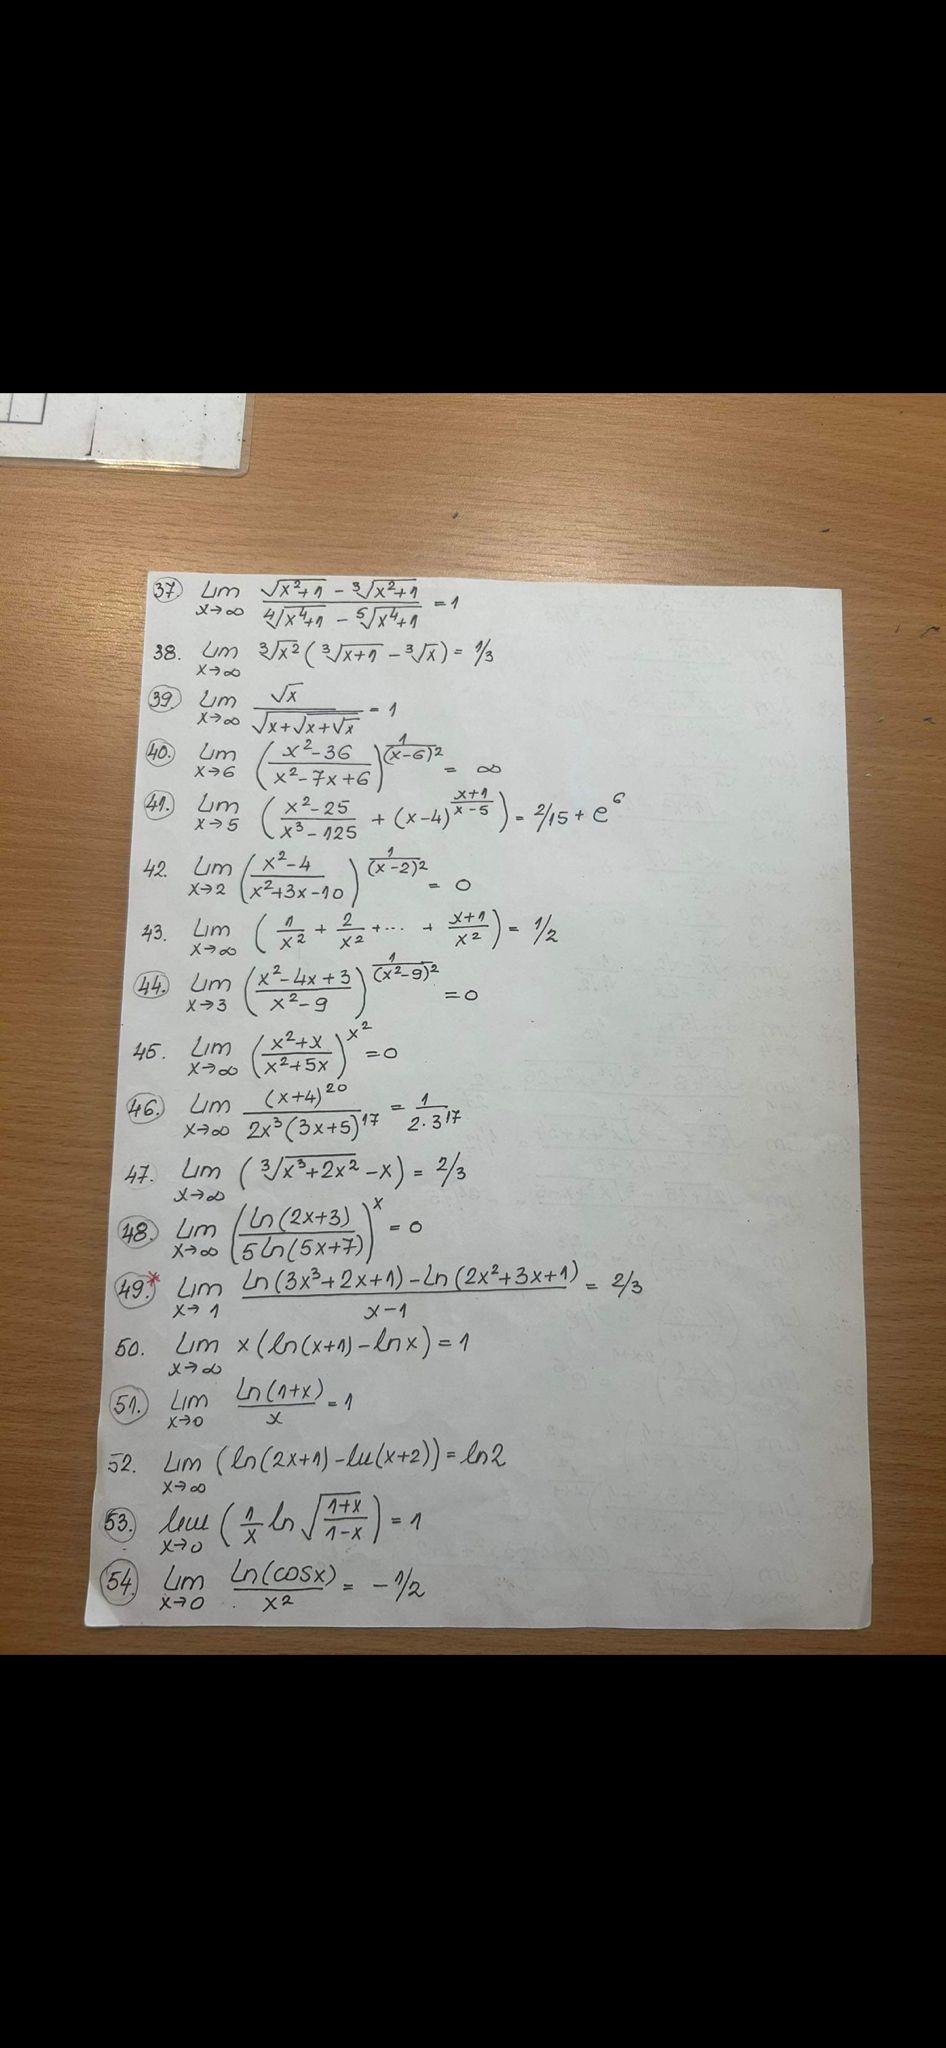 37. Lim x→∞ (√(x²+1) - ³√(x²+1)) / (⁴√(x⁴+1) - ⁵√(x⁴+1)) = 1
38. Lim x→∞ ³√x² (³√(x+1) - ³√x) = 1/3
39. Lim x→∞ √x / √(x+√(x+√x)) = 1
40. Lim x→6 ((x²-36)/(x²-7x+6))^(1/(x-6)²) = ∞
41. Lim x→5 ((x²-25)/(x³-125) + (x-4)^((x+1)/(x-5))) = 2/15 + e⁶
42. Lim x→2 ((x²-4)/(x²+3x-10))^(1/(x-2)²) = 0
43. Lim x→∞ (1/x² + 2/x² + ... + (x+1)/x²) = 1/2
44. Lim x→3 ((x²-4x+3)/(x²-9))^(1/(x²-9)²) = 0
45. Lim x→∞ ((x²+x)/(x²+5x))^(x²) = 0
46. Lim x→∞ (x+4)²⁰ / (2x³(3x+5)¹⁷) = 1/(2·3¹⁷)
47. Lim x→∞ (³√(x³+2x²) - x) = 2/3
48. Lim x→∞ (ln(2x+3)/(5ln(5x+7)))^x = 0
49.* Lim x→1 (ln(3x³+2x+1) - ln(2x²+3x+1))/(x-1) = 2/3
50. Lim x→∞ x(ln(x+1) - lnx) = 1
51. Lim x→0 ln(1+x)/x = 1
52. Lim x→∞ (ln(2x+1) - ln(x+2)) = ln2
53. lim x→0 (1/x ln √((1+x)/(1-x))) = 1
54. Lim x→0 ln(cosx)/x² = -1/2